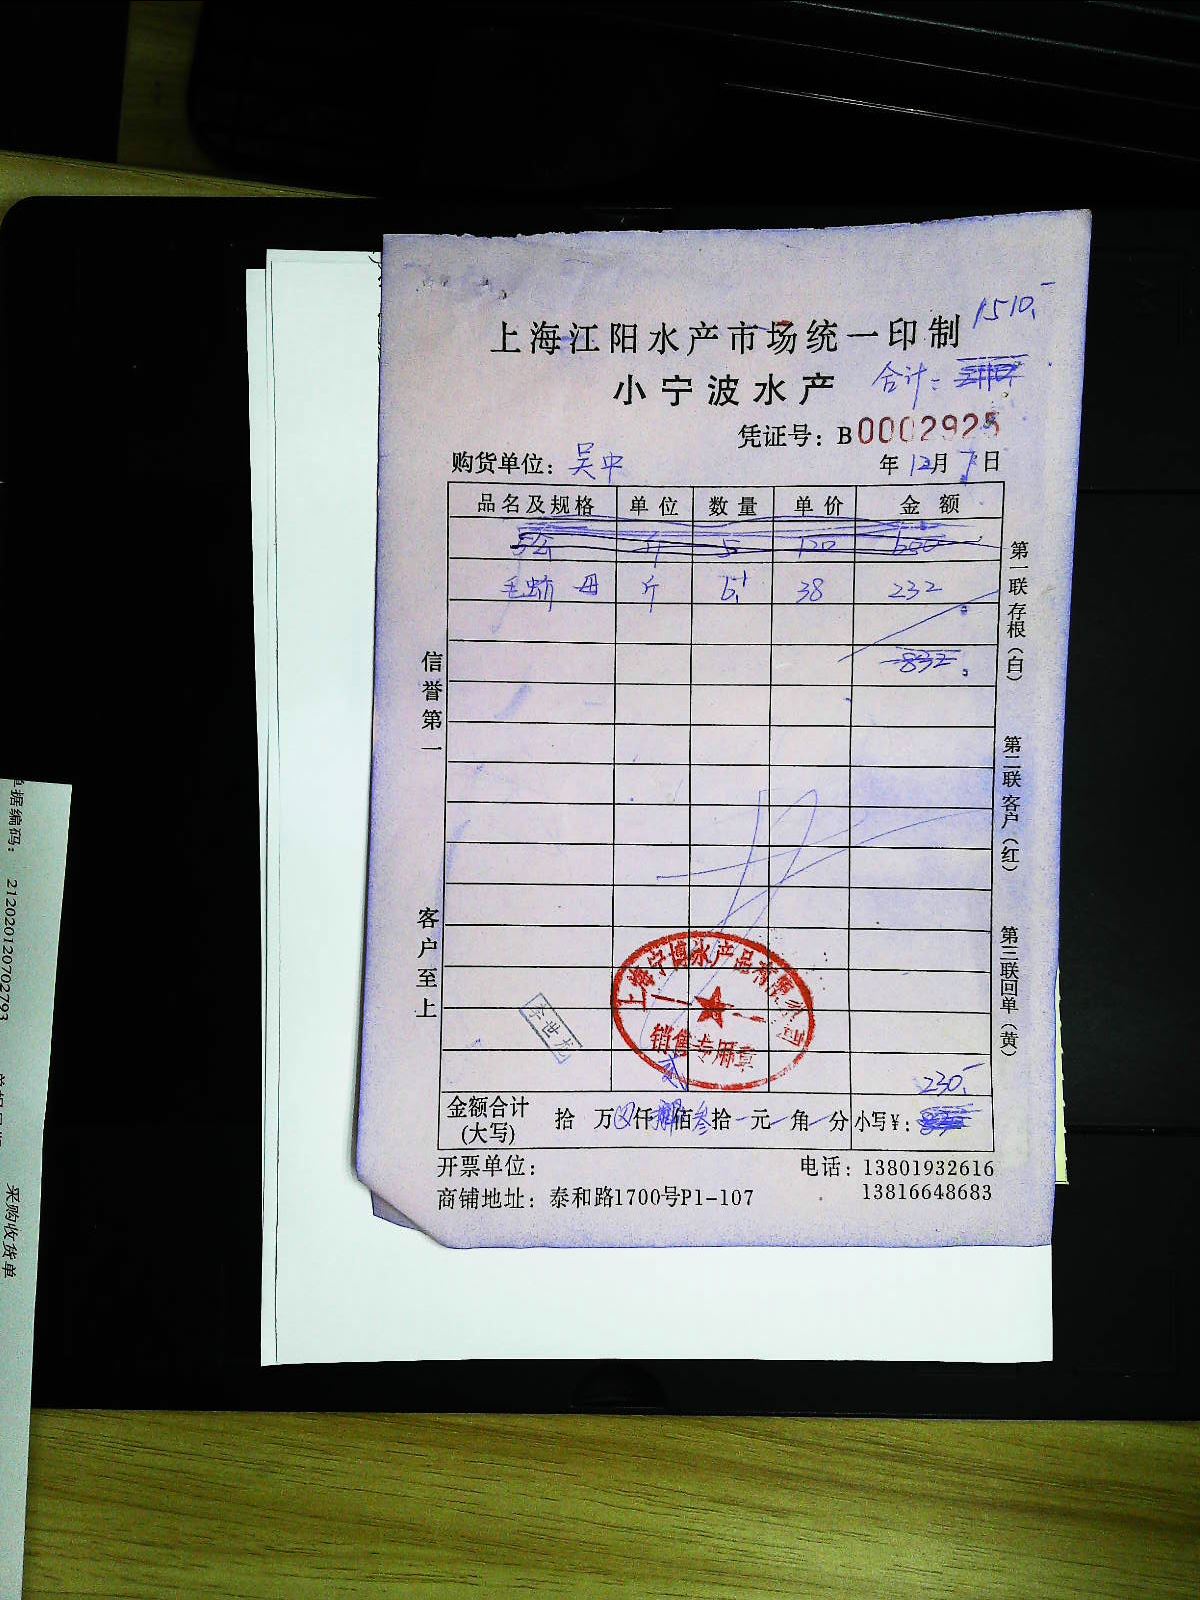 1510.-
上海江阳水产市场统一印制
小宁波水产 合计:
凭证号: B0002925
购货单位: 吴中 年 12月 7日
品名及规格 单位 数量 单价 金额
斤 5 120 600
毛蚶 母 斤 6.1 38 232
832
信誉第一
客户至上
第一联存根(白)
第二联客户(红)
第三联回单(黄)
上海宁博水产品有限公司
销售专用章
李世龙
230.-
金额合计(大写) 拾 万 仟 佰叁拾 元 角 分 小写¥:
开票单位: 电话: 13801932616
商铺地址: 泰和路1700号P1-107 13816648683
单据编码: 212020120702793
采购收货单